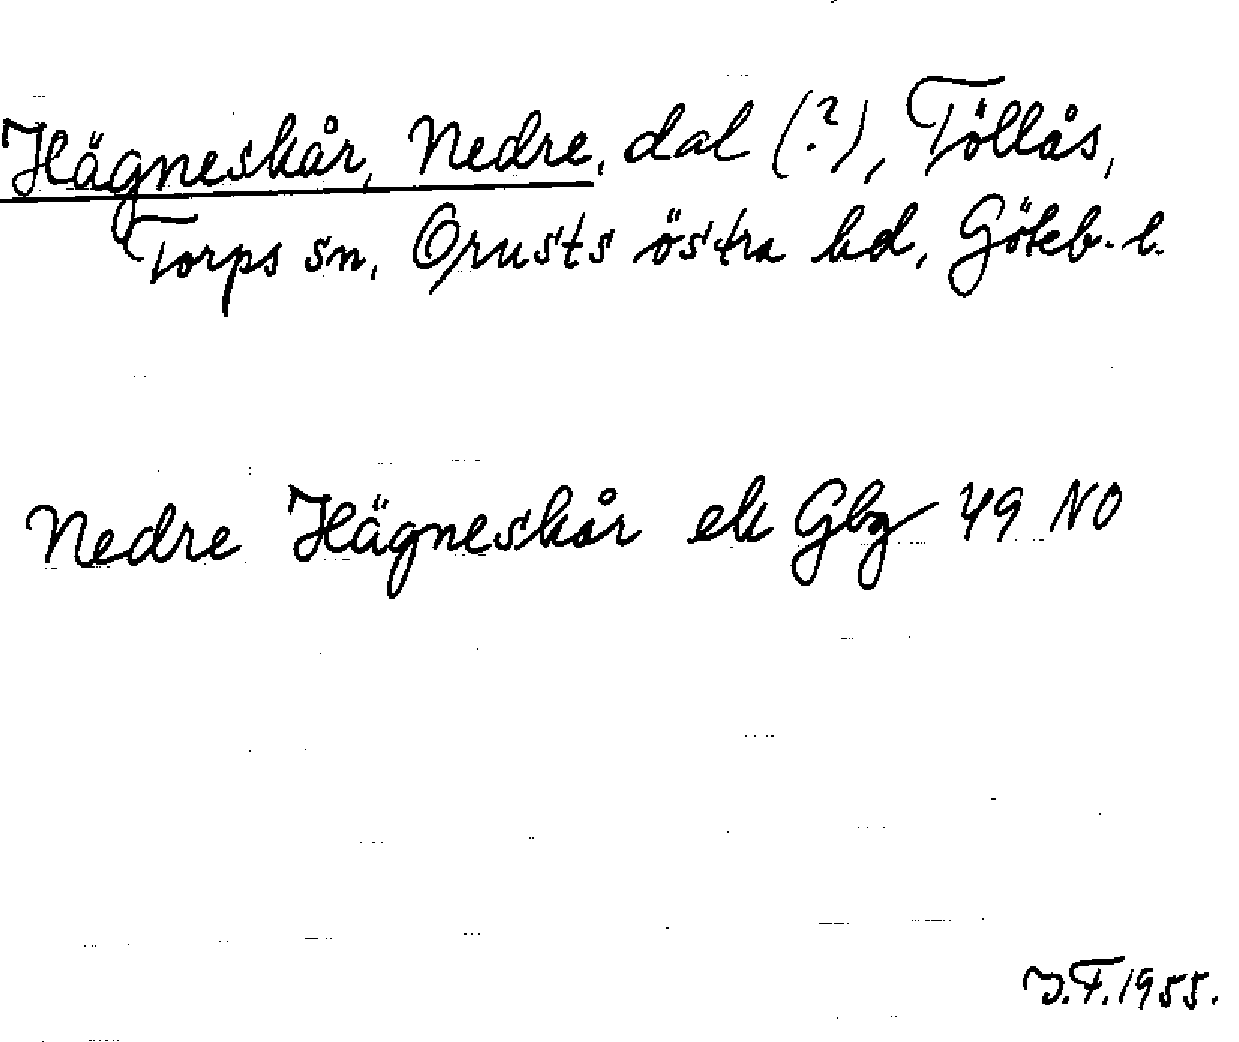 Hägneskår, Nedre, dal (?), Töllås,
Torps sn, Orusts östra hd, Göteb. l.
Nedre Hägneskår ek Gbg 49 NO
J.F. 1955.